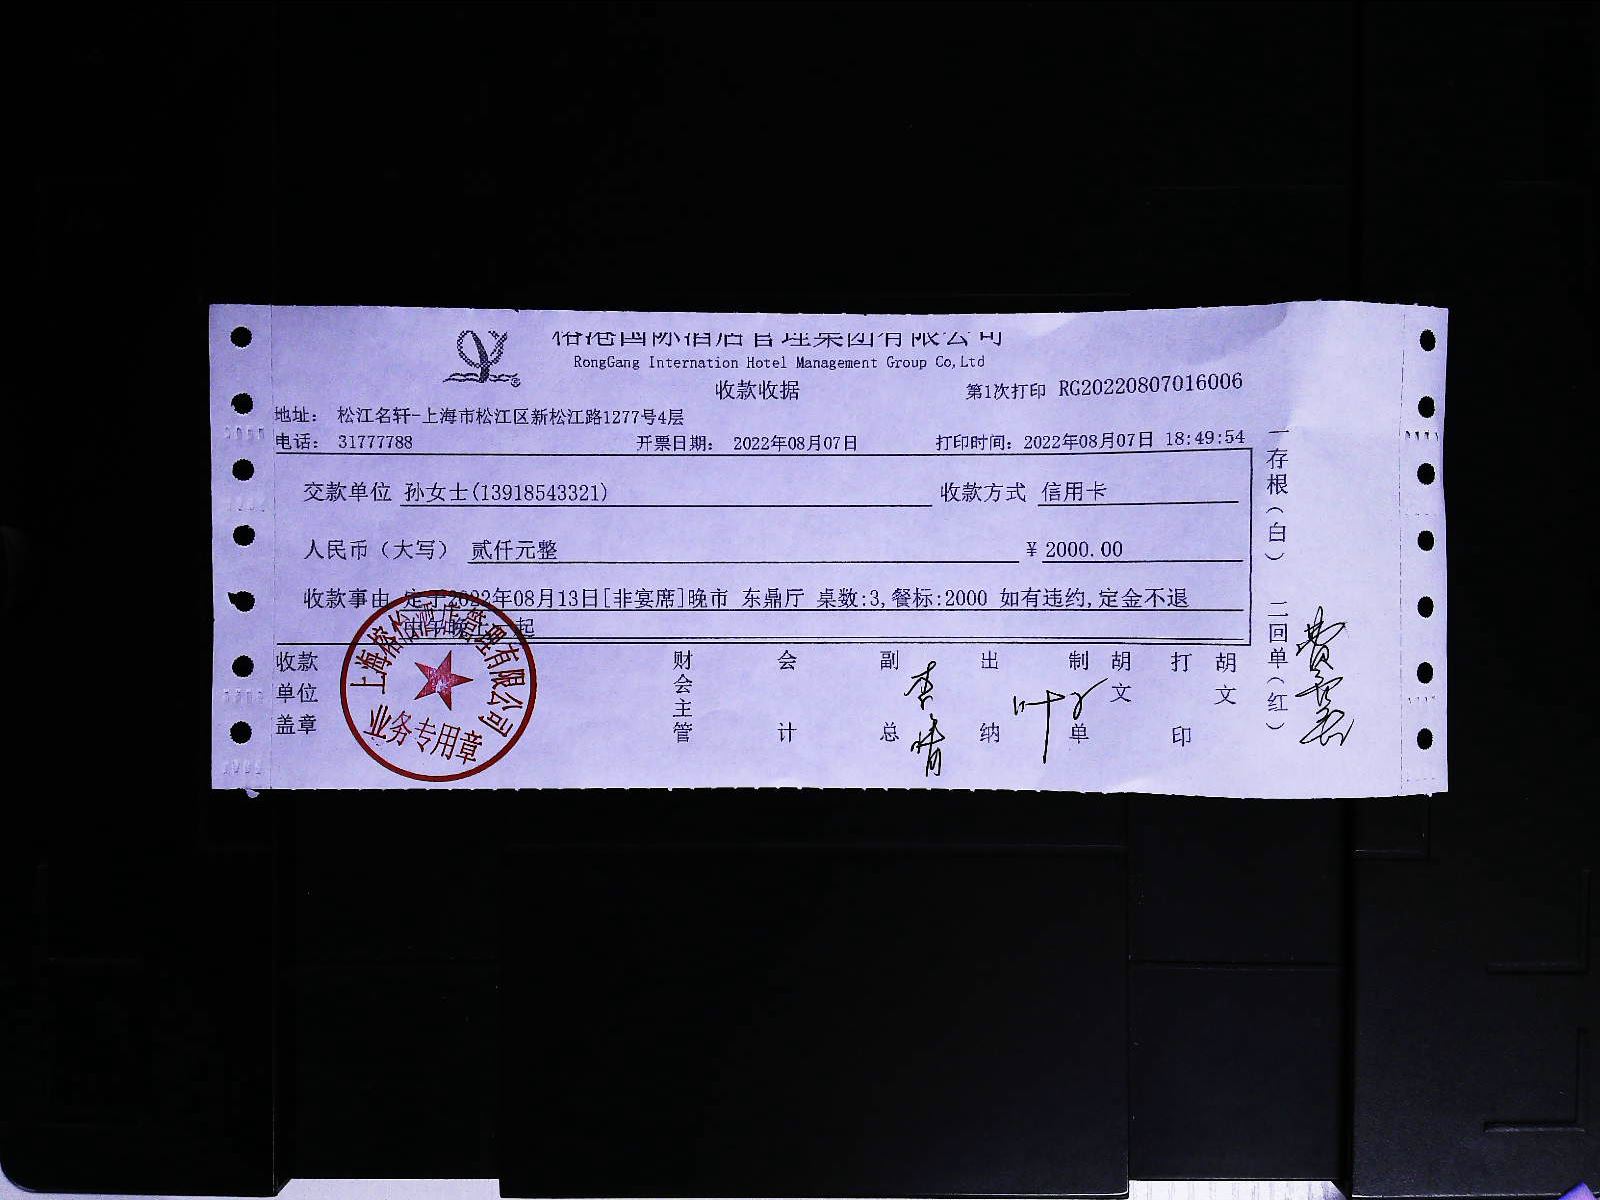 榕港国际酒店管理集团有限公司
RongGang Internation Hotel Management Group Co,Ltd
收款收据
第1次打印 RG20220807016006
地址: 松江名轩-上海市松江区新松江路1277号4层
电话: 31777788 开票日期: 2022年08月07日 打印时间:2022年08月07日 18:49:54
交款单位 孙女士(13918543321) 收款方式 信用卡
人民币（大写） 贰仟元整 ¥ 2000.00
收款事由 定于2022年08月13日[非宴席]晚市 东鼎厅 桌数:3,餐标:2000 如有违约,定金不退
一起
收款单位盖章
财会主管
会计
副总
出纳
制单
胡文
打印
胡文
一存根（白）
二回单（红）
上海榕港酒店管理有限公司
业务专用章